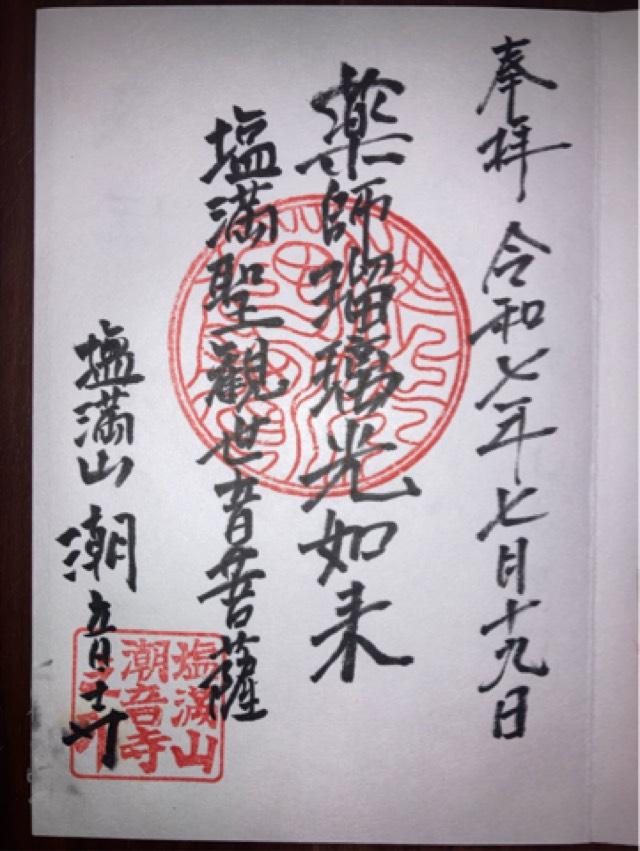 奉拝 令和七年七月十九日
薬師瑠璃光如来
塩満聖観世音菩薩
塩満山 潮音寺
塩満山
潮音寺
之印